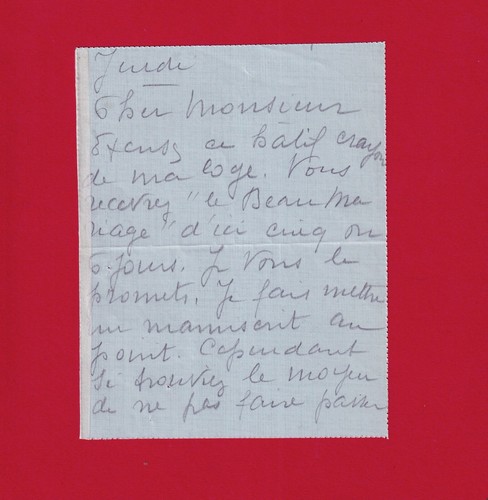 Jeudi
Cher Monsieur
Excusez ce hâtif crayon
de ma loge. Vous
recevrez "le Beau Ma
riage" d'ici cinq ou
6 jours. Je vous le
promets. Je fais mettre
un manuscrit au
point. Cependant
si trouvez le moyen
de ne pas faire passer